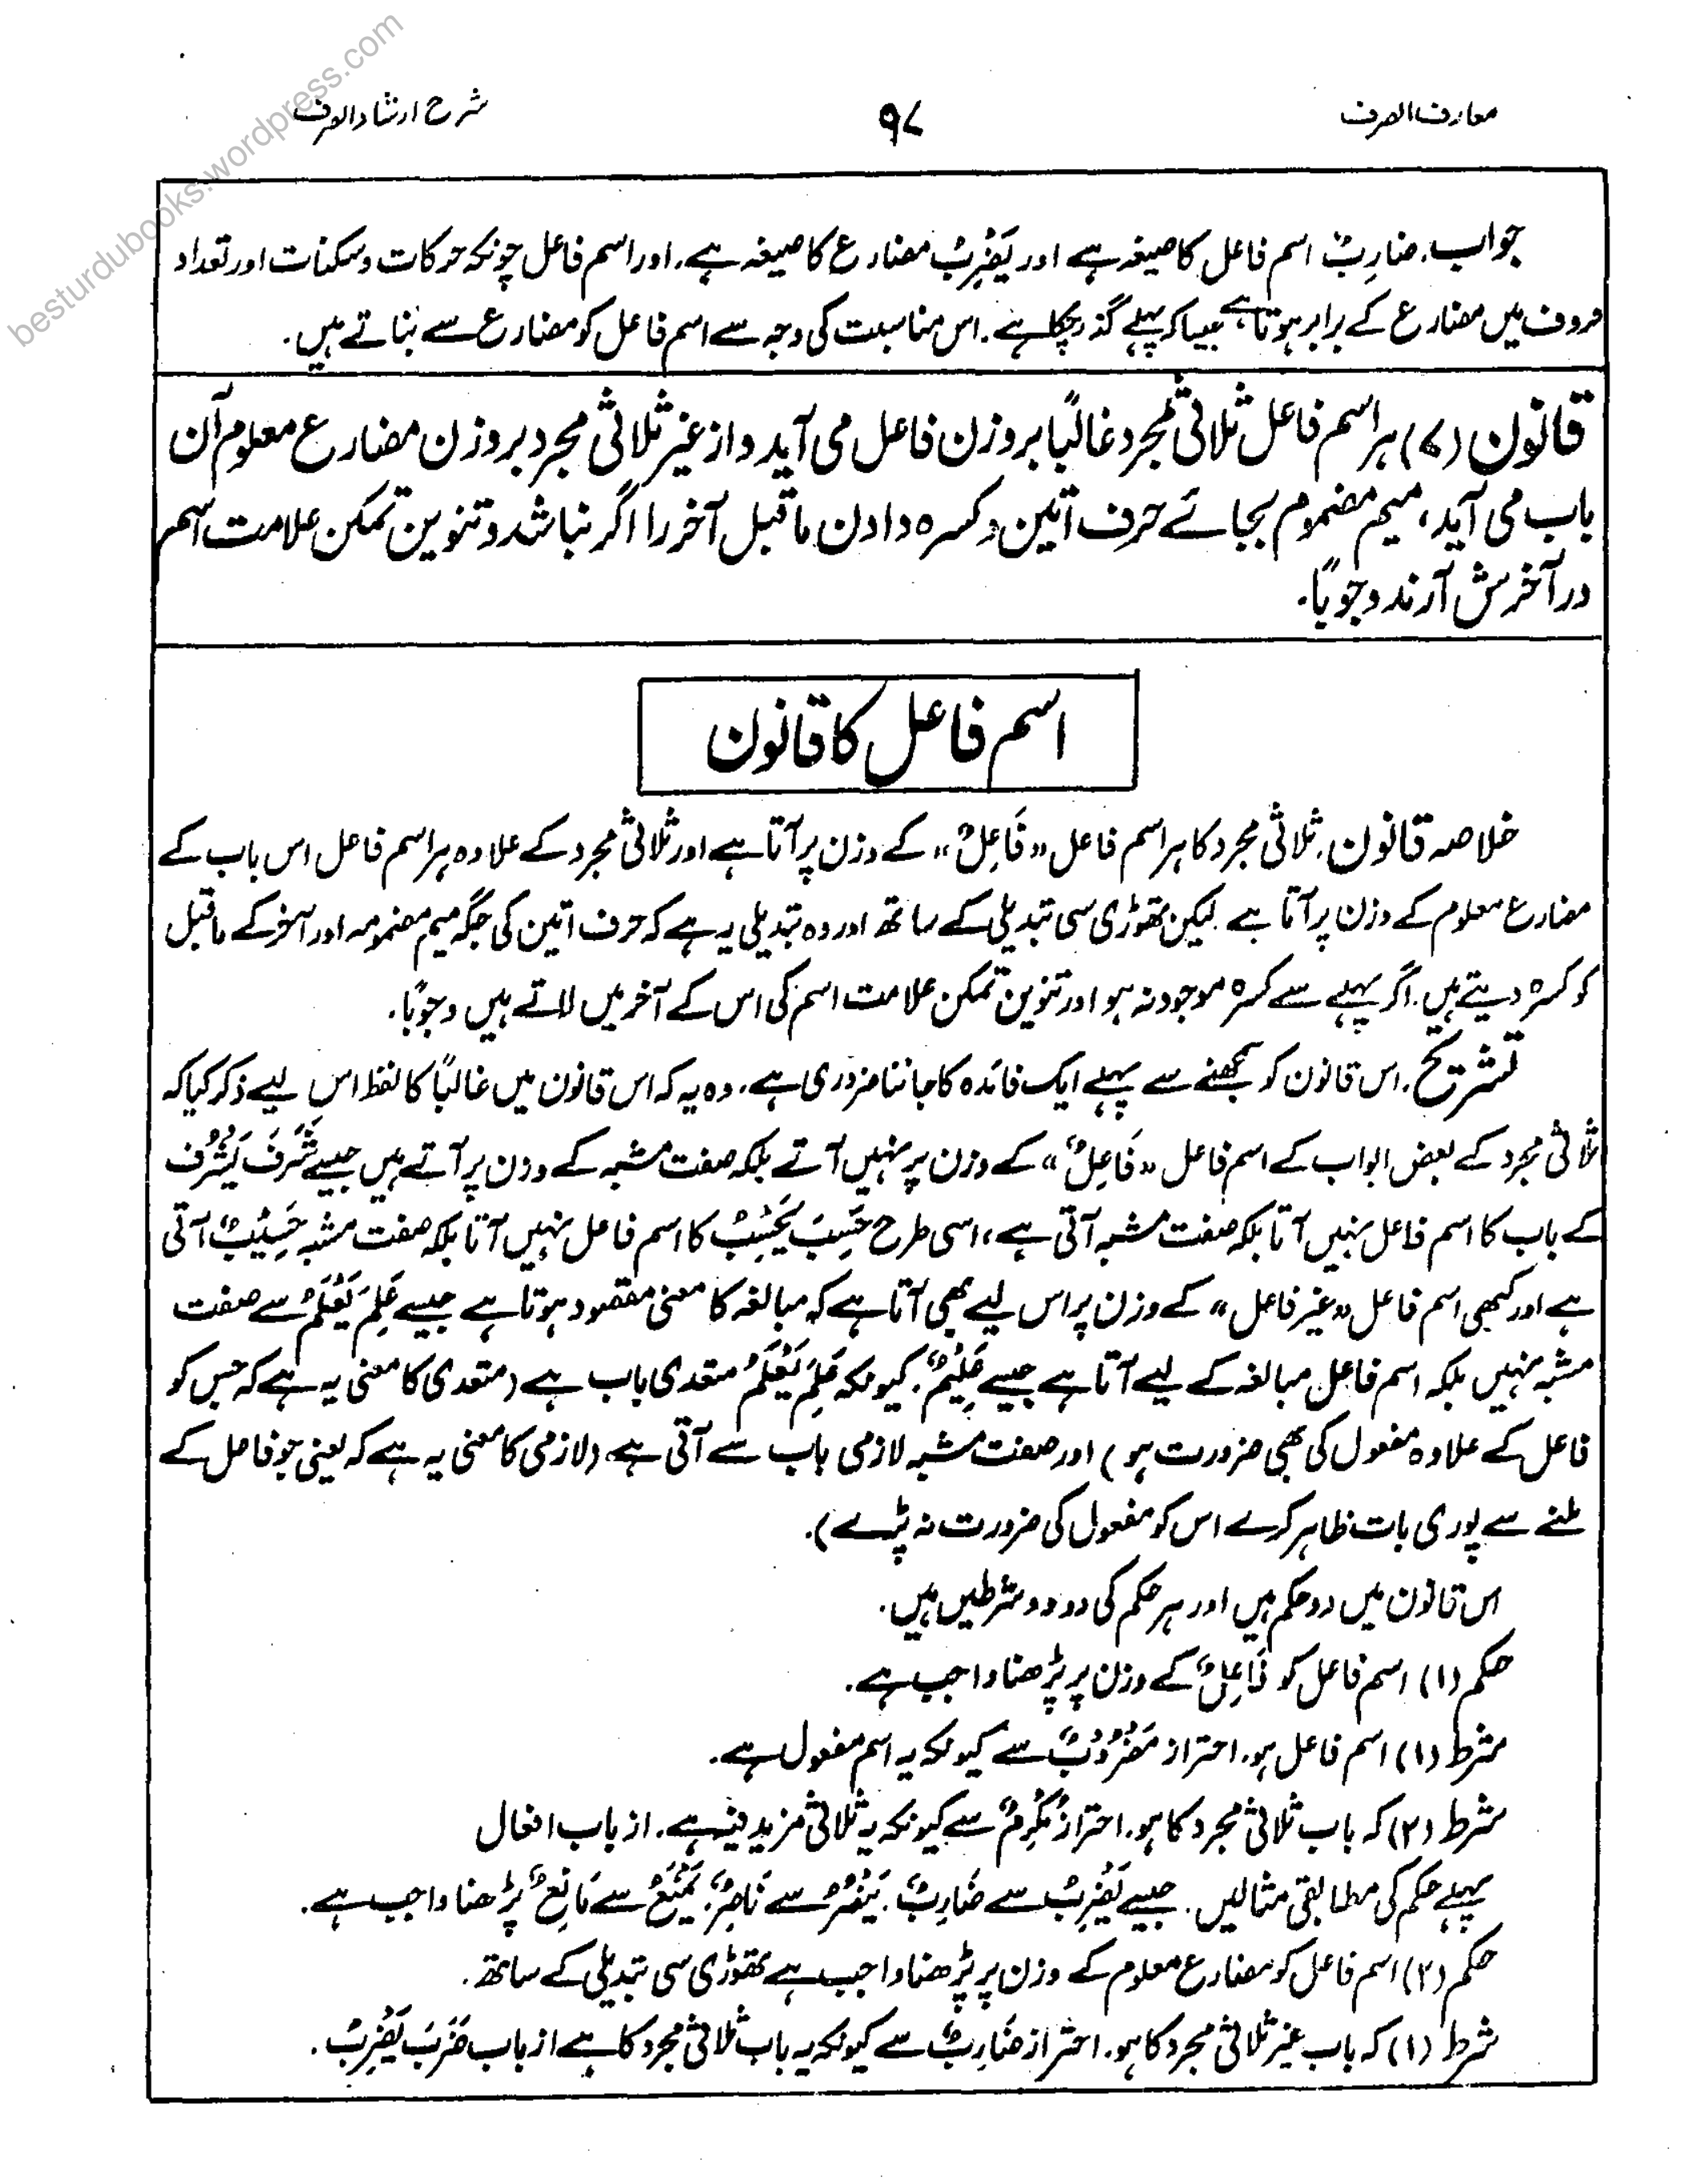 معارف الصرف
۹۷
شرح ارشاد الصرف
besturdubooks.wordpress.com
جواب. ضارِبٌ اسم فاعل کا صیغہ ہے اور یَضْرِبُ مضارع کا صیغہ ہے. اور اسم فاعل چونکہ حرکات وسکنات اور تعداد
حروف میں مضارع کے برابر ہوتا ہے جیسا کہ پہلے گذر چکا ہے. اس مناسبت کی وجہ سے اسم فاعل کو مضارع سے بناتے ہیں.
قانون (۷) ہر اسم فاعل ثلاثی مجرد غالبًا بروزن فاعل می آید واز غیر ثلاثی مجرد بروزن مضارع معلوم آن
باب می آید، میم مضموم بجائے حرف اتین وکسرہ دادن ماقبل آخر را اگر نباشد وتنوین تمکن علامت اسم
در آخرش آرند وجوبًا.
اسم فاعل کا قانون
خلاصہ قانون. ثلاثی مجرد کا ہر اسم فاعل «فَاعِلٌ» کے وزن پر آتا ہے اور ثلاثی مجرد کے علاوہ ہر اسم فاعل اس باب کے
مضارع معلوم کے وزن پر آتا ہے. لیکن تھوڑی سی تبدیلی کے ساتھ اور وہ تبدیلی یہ ہے کہ حرف اتین کی جگہ میم مضمومہ اور آخر کے ماقبل
کو کسرہ دیتے ہیں. اگر پہلے سے کسرہ موجود نہ ہو اور تنوین تمکن علامت اسم کی اس کے آخر میں لاتے ہیں وجوبًا.
تشریح. اس قانون کو سمجھنے سے پہلے ایک فائدہ کا جاننا ضروری ہے. وہ یہ کہ اس قانون میں غالبًا کا لفظ اس لیے ذکر کیا کہ
ثلاثی مجرد کے بعض ابواب کے اسم فاعل «فَاعِلٌ» کے وزن پر نہیں آتے بلکہ صفت مشبہ کے وزن پر آتے ہیں جیسے شَرُفَ یَشْرُفُ
کے باب کا اسم فاعل نہیں آتا بلکہ صفت مشبہ آتی ہے، اسی طرح حَسِبَ یَحْسِبُ کا اسم فاعل نہیں آتا بلکہ صفت مشبہ حَسِیْبٌ آتی
ہے اور کبھی اسم فاعل «غیر فاعل» کے وزن پر اس لیے بھی آتا ہے کہ مبالغہ کا معنی مقصود ہوتا ہے جیسے عَلِمَ یَعْلَمُ سے صفت
مشبہ نہیں بلکہ اسم فاعل مبالغہ کے لیے آتا ہے جیسے عَلِیْمٌ. کیونکہ عَلِمَ یَعْلَمُ متعدی باب ہے (متعدی کا معنی یہ ہے کہ جس کو
فاعل کے علاوہ مفعول کی بھی ضرورت ہو) اور صفت مشبہ لازمی باب سے آتی ہے، (لازمی کا معنی یہ ہے کہ یعنی جو فاعل کے
ملنے سے پوری بات ظاہر کرے اس کو مفعول کی ضرورت نہ پڑے).
اس قانون میں دو حکم ہیں اور ہر حکم کی دو دو شرطیں ہیں.
حکم (۱) اسم فاعل کو فَاعِلٌ کے وزن پر پڑھنا واجب ہے.
شرط (۱) اسم فاعل ہو. احتراز مَضْرُوْبٌ سے کیونکہ یہ اسم مفعول ہے.
شرط (۲) کہ باب ثلاثی مجرد کا ہو. احتراز مُکْرِمٌ سے کیونکہ یہ ثلاثی مزید فیہ ہے. از باب افعال
پہلے حکم کی مطابقتی مثالیں. جیسے یَضْرِبُ سے ضَارِبٌ. یَنْصُرُ سے نَاصِرٌ. یَمْنَعُ سے مَانِعٌ پڑھنا واجب ہے.
حکم (۲) اسم فاعل کو مضارع معلوم کے وزن پر پڑھنا واجب ہے تھوڑی سی تبدیلی کے ساتھ.
شرط (۱) کہ باب غیر ثلاثی مجرد کا ہو. احتراز ضَارِبٌ سے کیونکہ یہ باب ثلاثی مجرد کا ہے از باب ضَرَبَ یَضْرِبُ.